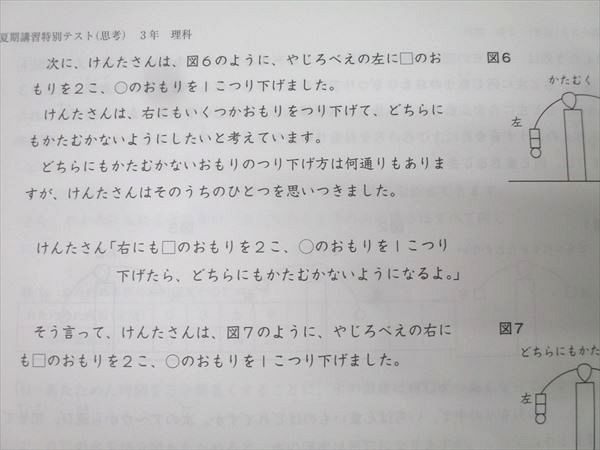 夏期講習特別テスト(思考) 3年 理科
次に、けんたさんは、図6のように、やじろべえの左に□のお
もりを2こ、○のおもりを1こつり下げました。
けんたさんは、右にもいくつかおもりをつり下げて、どちらに
もかたむかないようにしたいと考えています。
どちらにもかたむかないおもりのつり下げ方は何通りもありま
すが、けんたさんはそのうちのひとつを思いつきました。
けんたさん「右にも□のおもりを2こ、○のおもりを1こつり
下げたら、どちらにもかたむかないようになるよ。」
そう言って、けんたさんは、図7のように、やじろべえの右に
も□のおもりを2こ、○のおもりを1こつり下げました。
図6
かたむく
左
図7
どちらにもかた
左